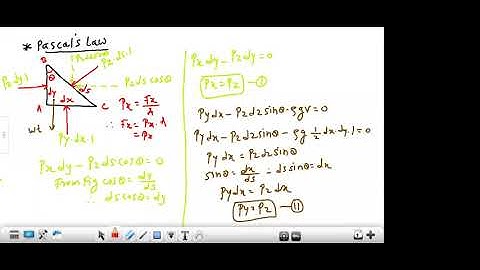 * Pascal's Law
B
P2 ds.1
θ
Px dy.1
dy
ds
P2 ds cosθ
A
dx
C
Px = Fx/A
∴ Fx = Px·A
= Px
wt
Py.dx.1
Px dy - P2 ds cosθ = 0
From fig cosθ = dy/ds
∴ ds cosθ = dy
Px dy - P2 dy = 0
Px = P2 - (I)
Py dx - P2 ds sinθ - ρgV = 0
Py dx - P2 ds sinθ - ρg 1/2 dx.dy.1 = 0
Py dx = P2 ds sinθ
sinθ = dx/ds ∴ ds sinθ = dx
Py dx = P2 dx
Py = P2 - (II)